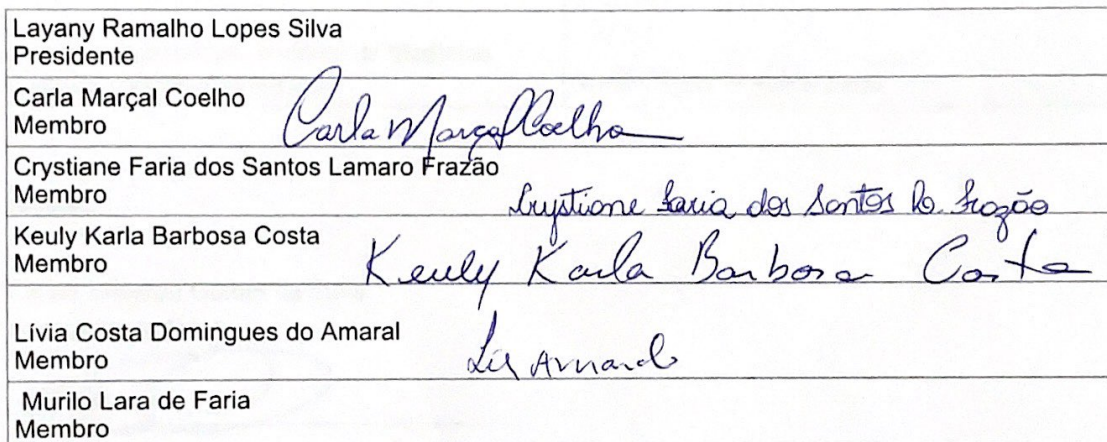 Layany Ramalho Lopes Silva
Presidente
Carla Marçal Coelho
Membro
Carla Marçal Coelho
Crystiane Faria dos Santos Lamaro Frazão
Membro
Crystiane Faria dos Santos L. Frazão
Keuly Karla Barbosa Costa
Membro
Keuly Karla Barbosa Costa
Lívia Costa Domingues do Amaral
Membro
Murilo Lara de Faria
Membro